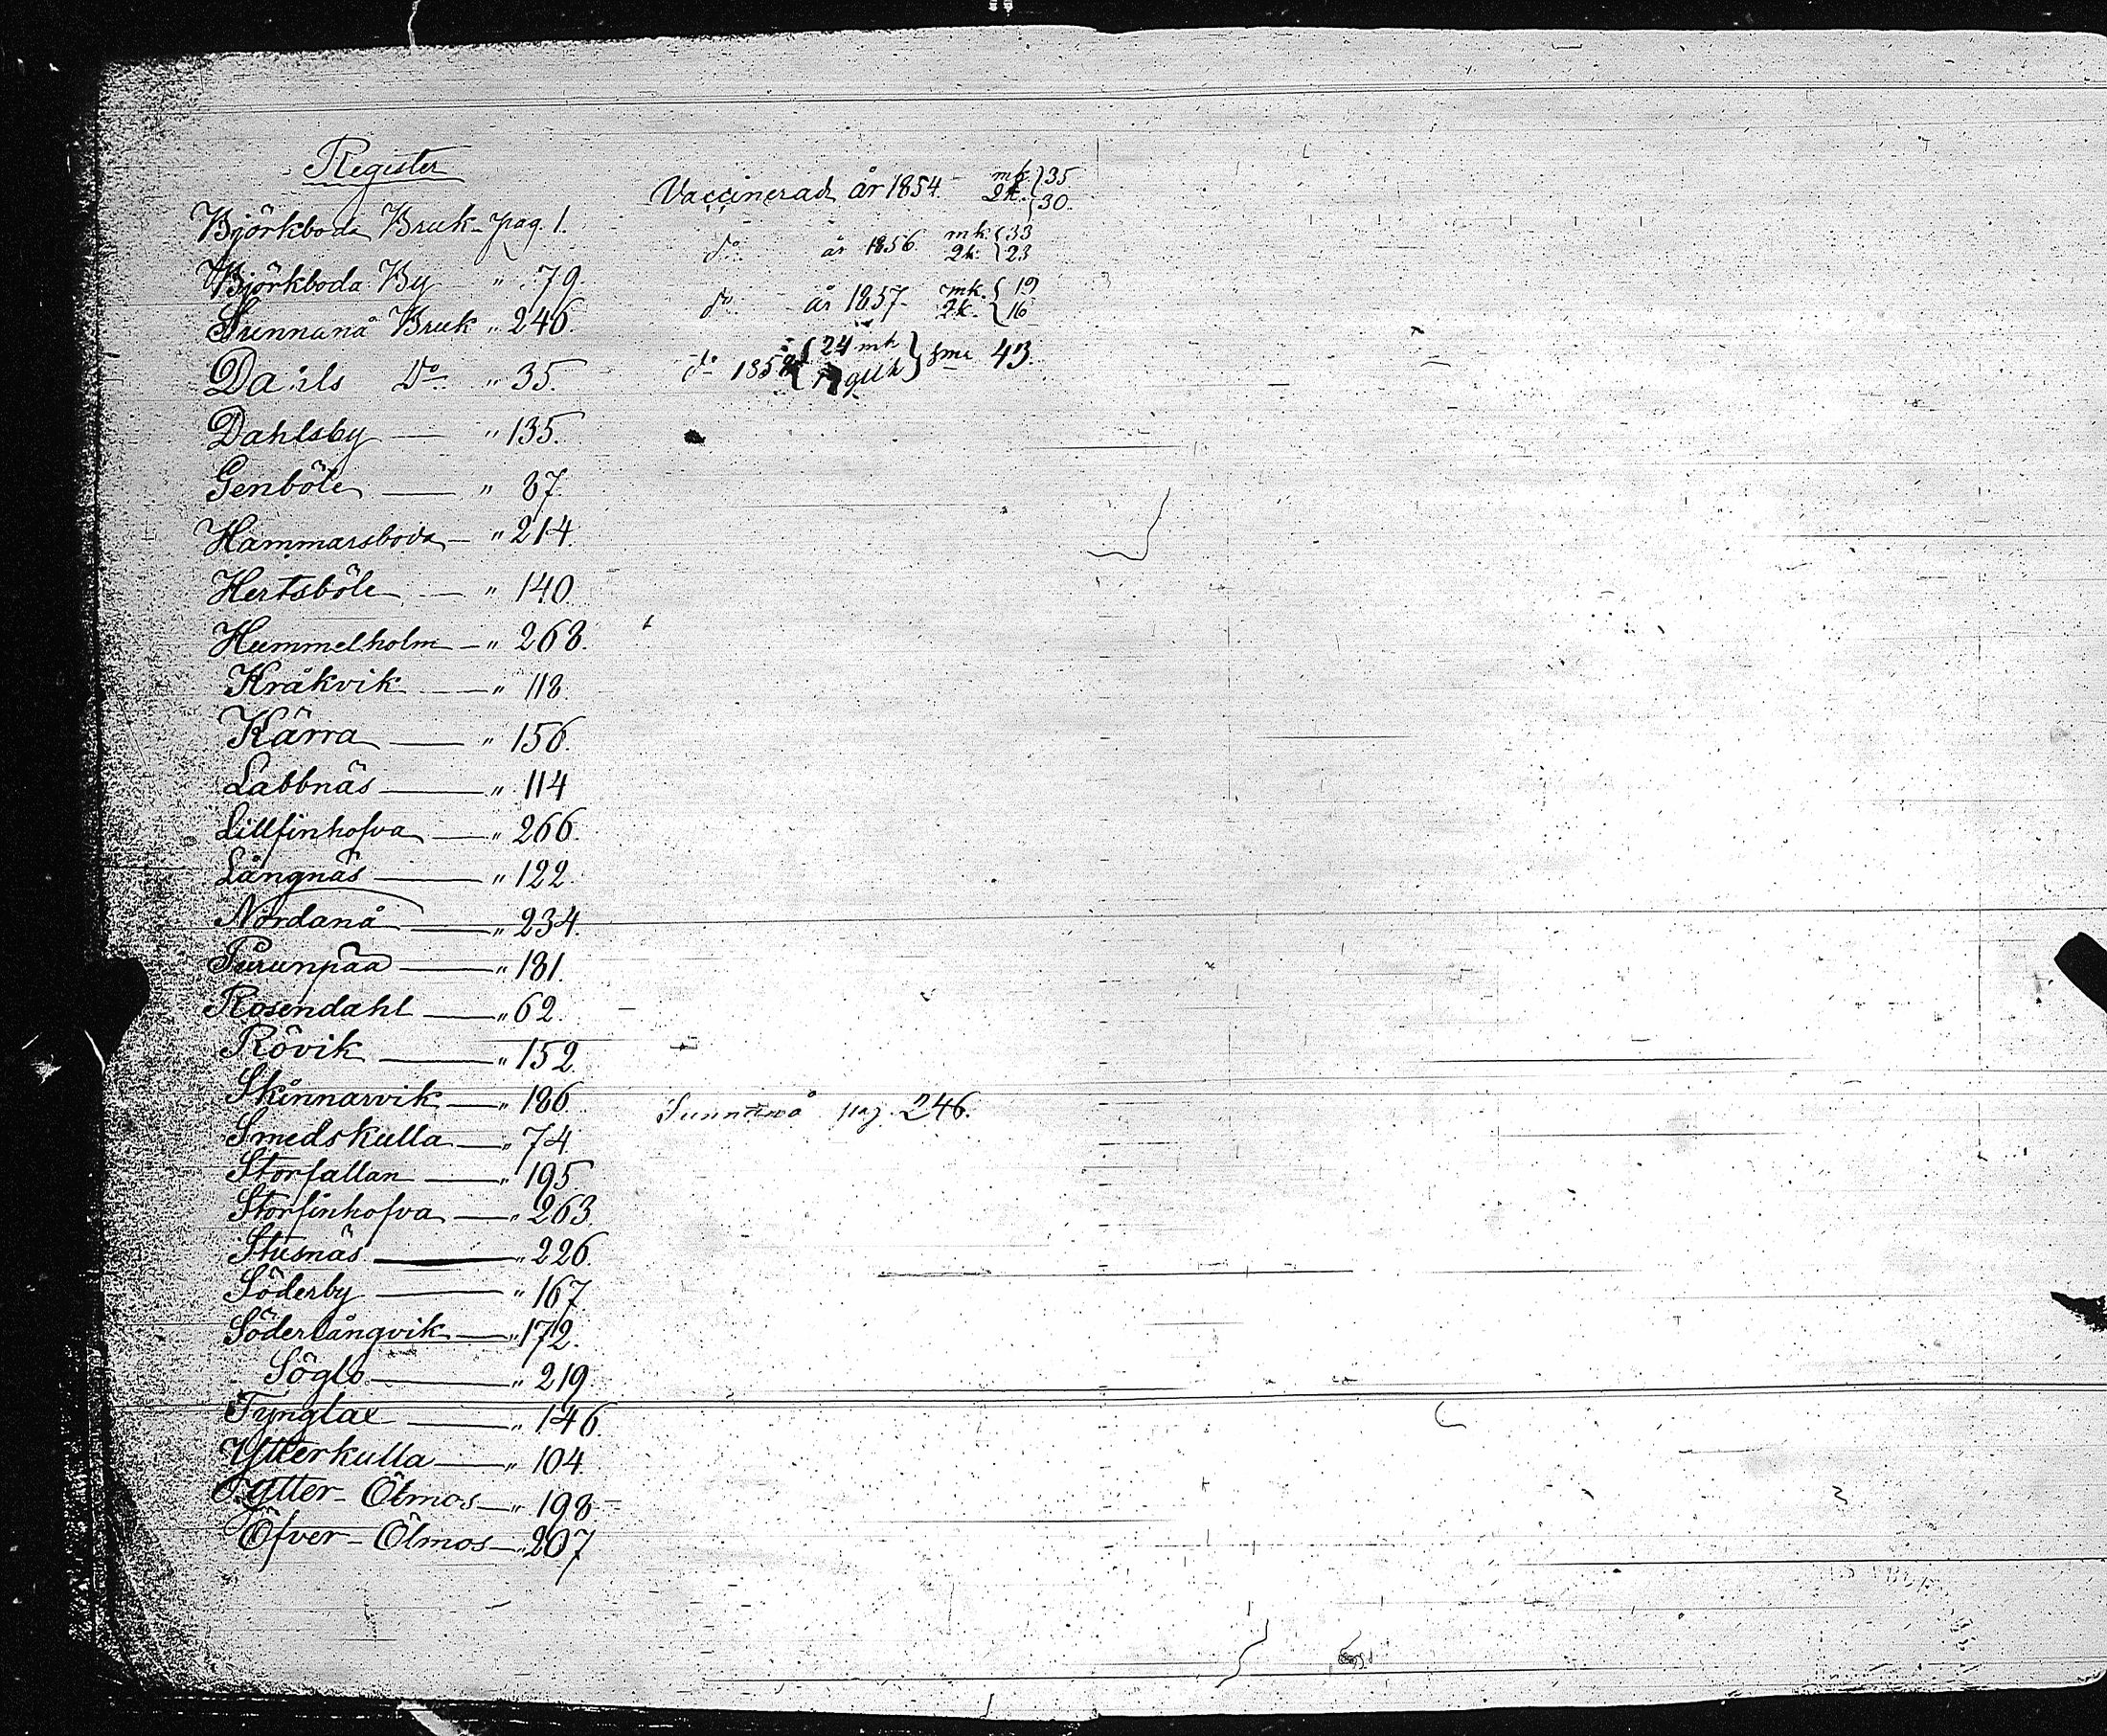 Register
Björkboda Bruk pag. 1.
Björkboda By " 79
Sunnanå Bruk " 246.
Dahls Do " 35.
Dahlsby — " 135.
Genböle — " 87.
Hammarsboda — " 214.
Hertsböle — " 140.
Hummelholm — " 268.
Kråkvik — " 118.
Kärra — " 156.
Labbnäs — " 114
Lillfinhofva — " 266.
Långnäs — " 122.
Nordanå — " 234.
Purunpää — " 181.
Rosendahl — " 62.
Rövik — " 152.
Skinnarvik — " 186
Smedskulla — " 74
Storfallan — " 195.
Storfinhofva — " 263.
Stusnäs — " 226.
Söderby — " 167.
Söderlångvik — " 172.
Söglo — " 219.
Tynglax — " 146
Ytterkulla — " 104.
Ytter-Ölmos — " 198
Öfver-Ölmos — " 207
Vaccinerad år 1854. mk. 35
qk. 30.
do år 1856 mk. 33
qk. 23
do år 1857. mk. 19
qk. 16
do 1858 24 mk
19 qvk Sma 43.
Sunnanå pag. 246.